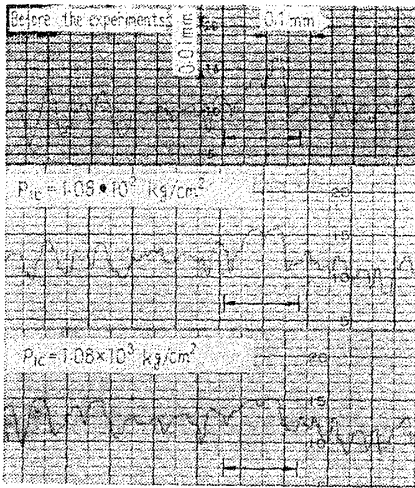 Before the experiments
0.01mm
0.1mm
P₁c = 1.08•10² kg/cm²
20
15
10
5
P₁c = 1.08×10³ kg/cm²
20
15
10